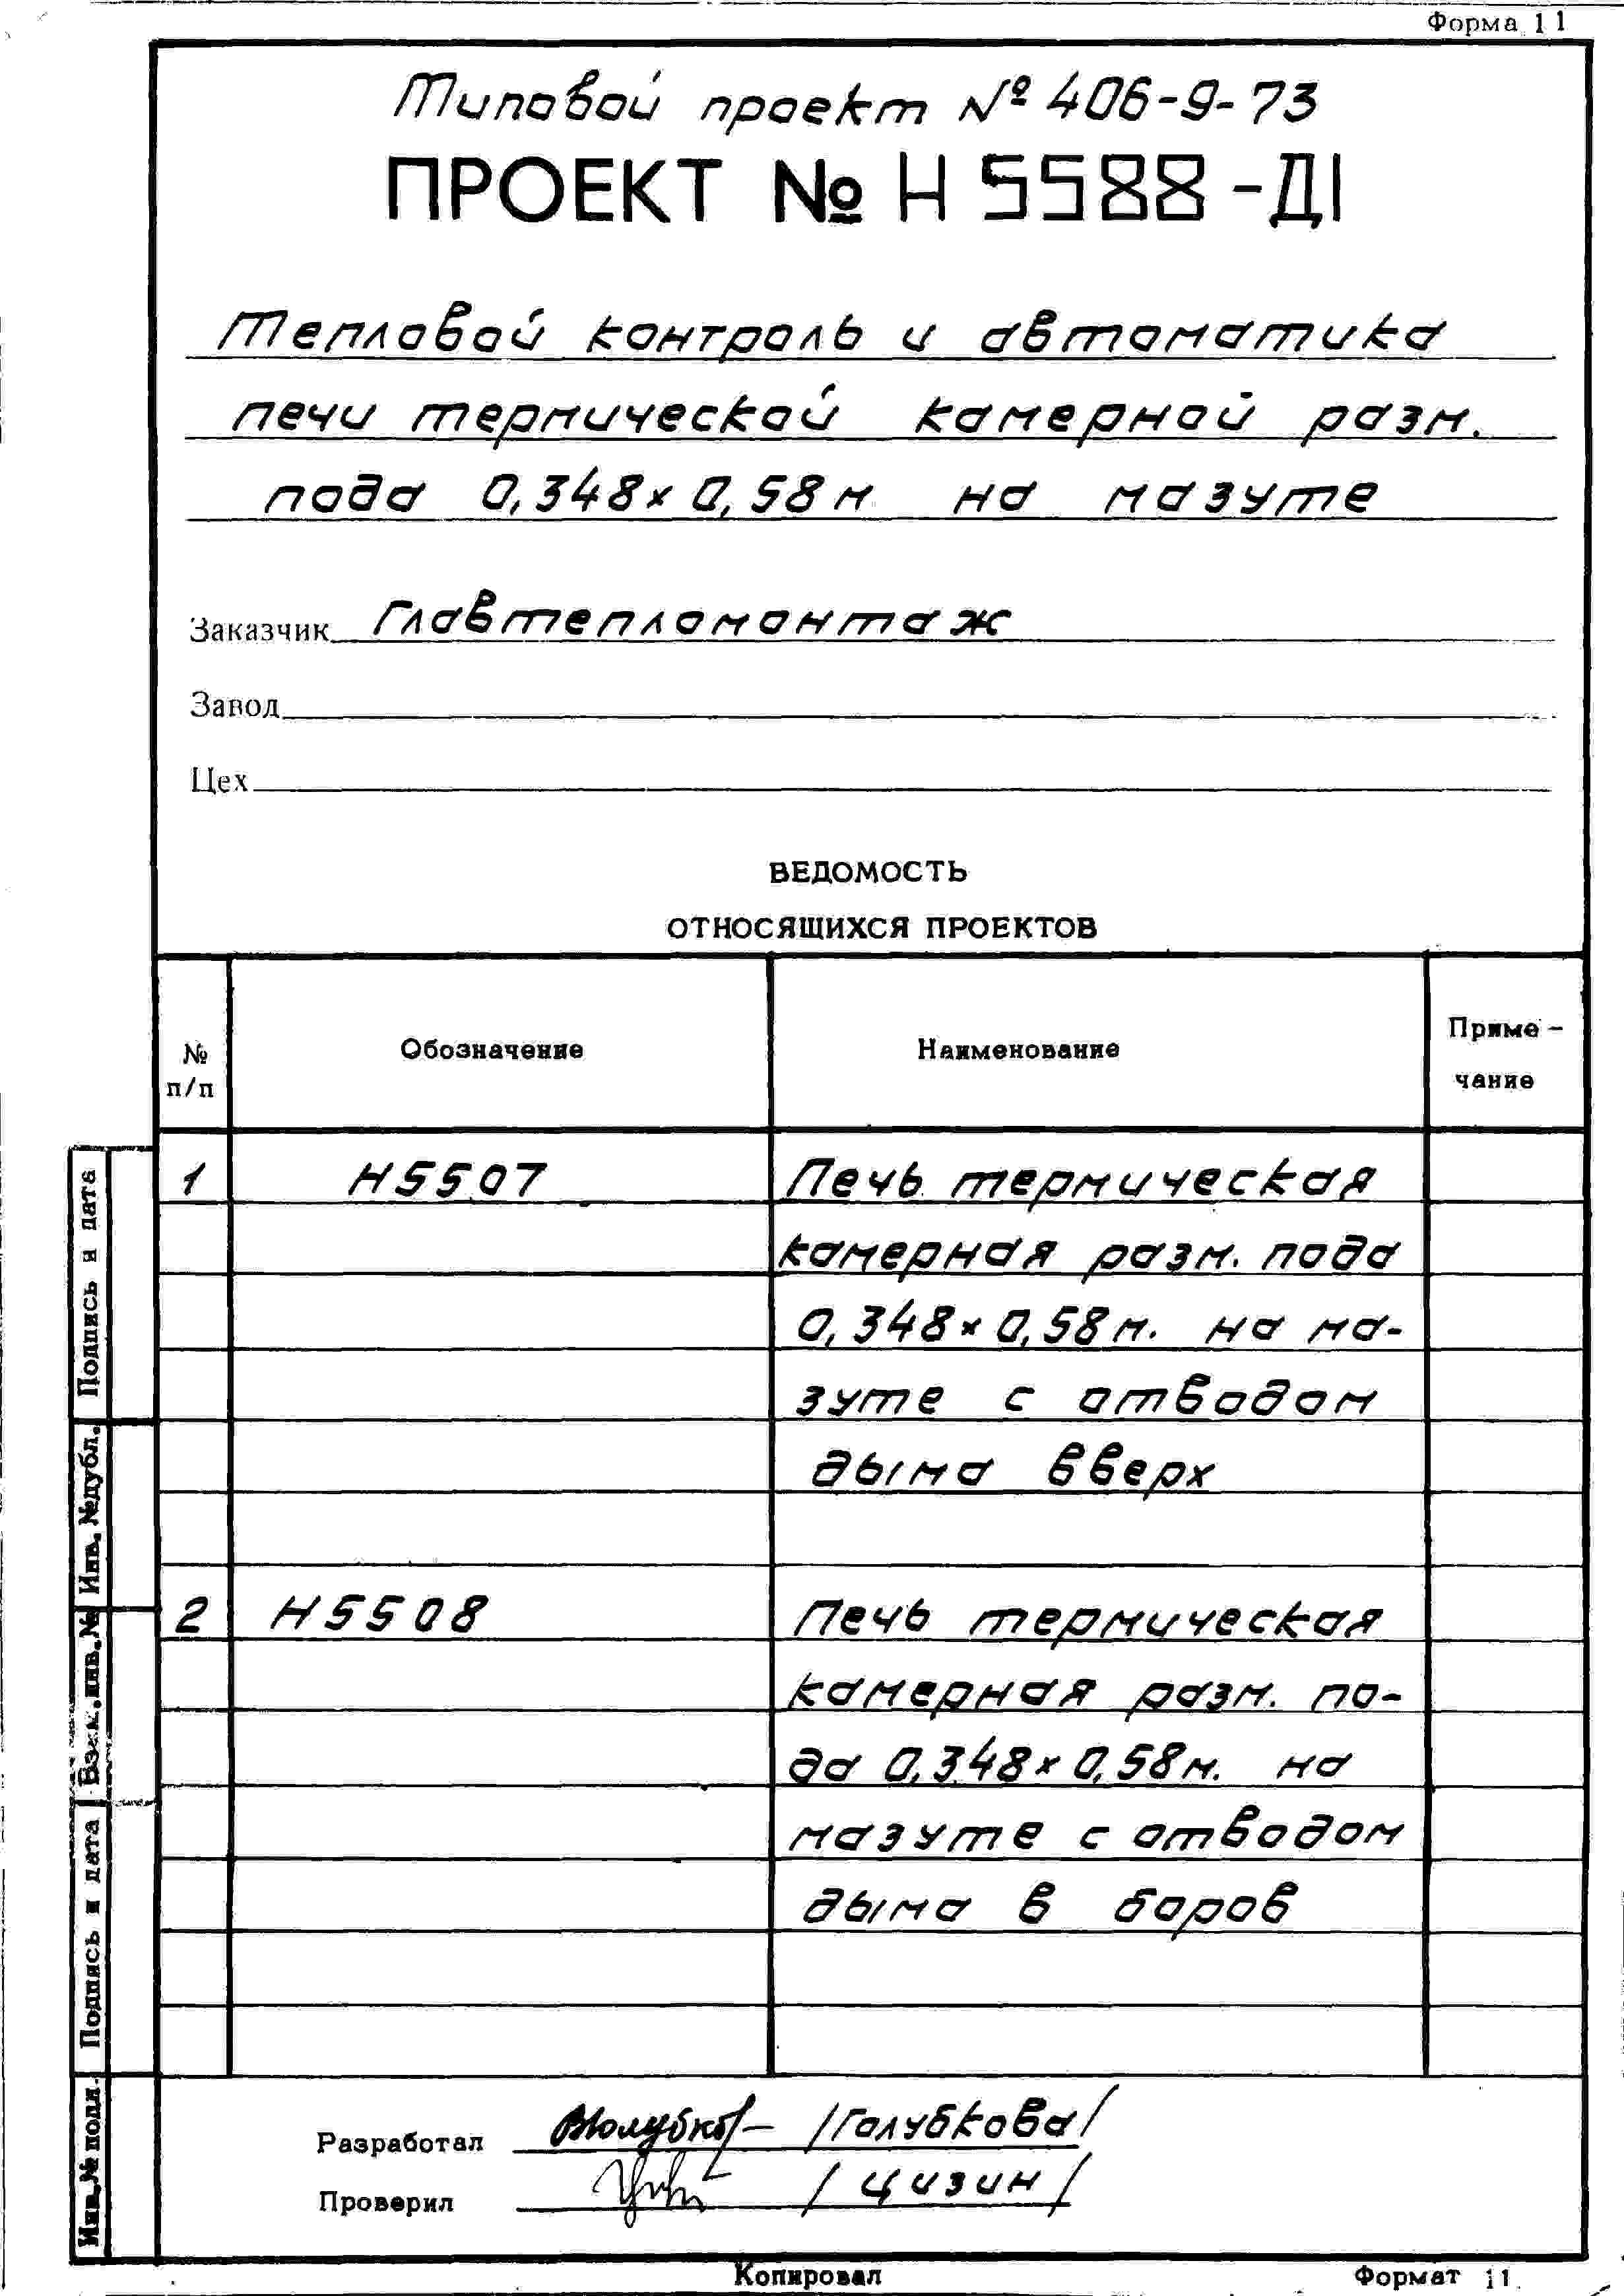 Форма 11
Типовой проект № 406-9-73
ПРОЕКТ № Н 5588-Д1
Тепловой контроль и автоматика
печи термической камерной разм.
пода 0,348×0,58м на мазуте
Заказчик Главтепломонтаж
Завод
Цех
ВЕДОМОСТЬ
ОТНОСЯЩИХСЯ ПРОЕКТОВ
№ п/п Обозначение Наименование Примечание
1 Н5507 Печь термическая
камерная разм. пода
0,348×0,58м. на ма-
зуте с отводом
дыма вверх
2 Н5508 Печь термическая
камерная разм. по-
да 0,348×0,58м. на
мазуте с отводом
дыма в боров
Разработал /Голубкова/
Проверил /Цизин/
Копировал Формат 11
Подпись и дата
Инв. №дубл.
Взам.инв.№
Подпись и дата
Инв.№ подл.